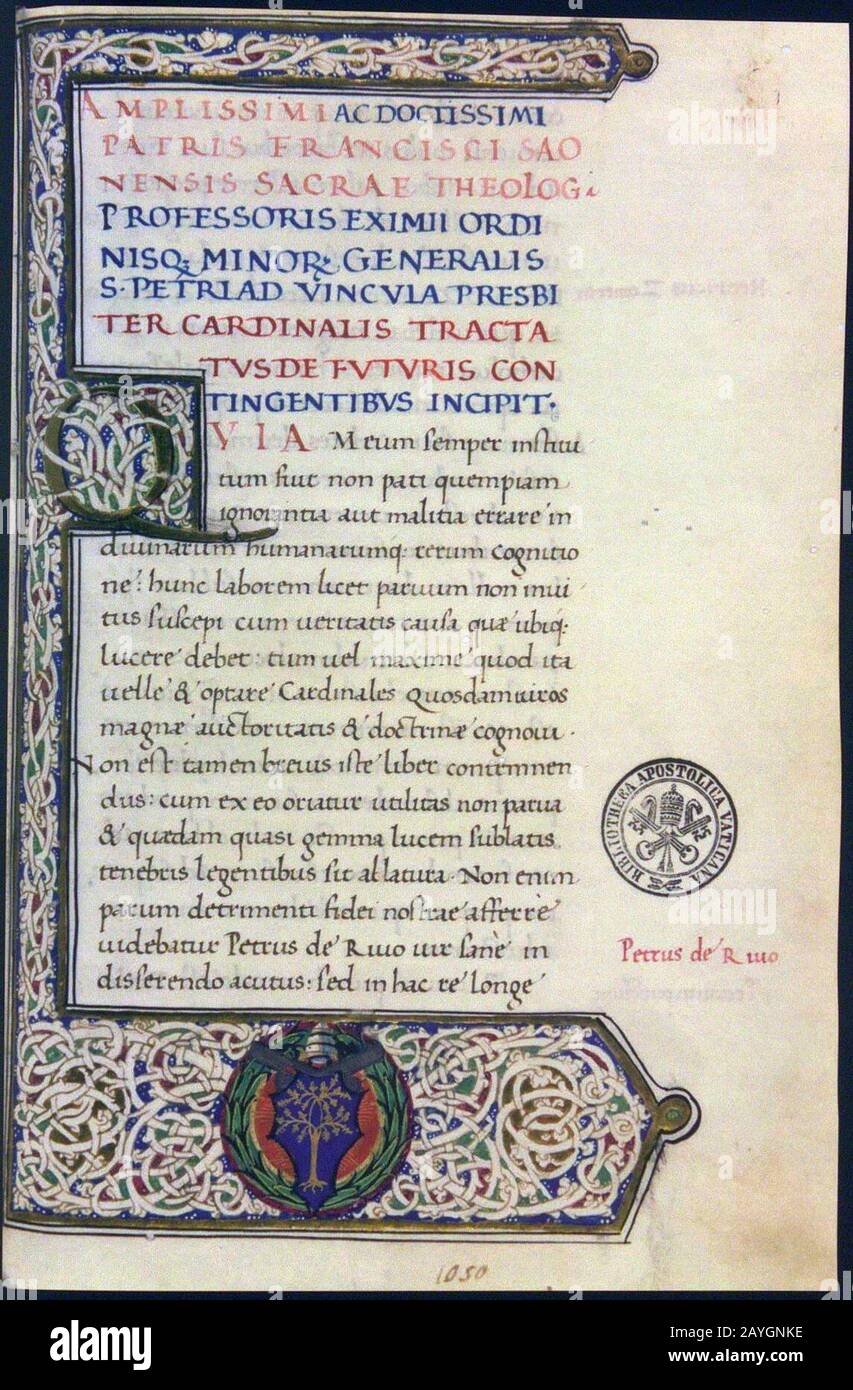 AMPLISSIMI AC DOCTISSIMI
PATRIS FRANCISCI SAO
NENSIS SACRAE THEOLOG.
PROFESSORIS EXIMII ORDI
NISQ; MINOR; GENERALIS
S. PETRI AD VINCVLA PRESBI
TER CARDINALIS TRACTA
TVS DE FVTVRIS CON
TINGENTIBVS INCIPIT.
QVIA Meum semper institu
tum fuit non pati quempiam
ignorantia aut malitia errare in
diuinarum humanarumq; rerum cognitio
ne: hunc laborem licet paruum non inui
tus suscepi cum ueritatis causa quæ ubiq;
lucere debet: tum uel maxime quod ita
uelle & optare Cardinales quosdam uiros
magnæ auctoritatis & doctrinæ cognoui.
Non est tamen breuis iste liber contemnen
dus: cum ex eo oriatur utilitas non parua
& quædam quasi gemma lucem sublatis
tenebris legentibus sit allatura. Non enim
parum detrimenti fidei nostrae afferre
uidebatur Petrus de Riuo uir sane in
disserendo acutus: sed in hac re longe
Petrus de Riuo
BIBLIOTHECA APOSTOLICA VATICANA
1050
alamy
Image ID: 2AYGNKE
www.alamy.com